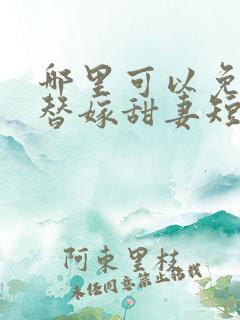 哪里可以免
替嫁甜妻短
阿東里桂
未经同意禁止转载